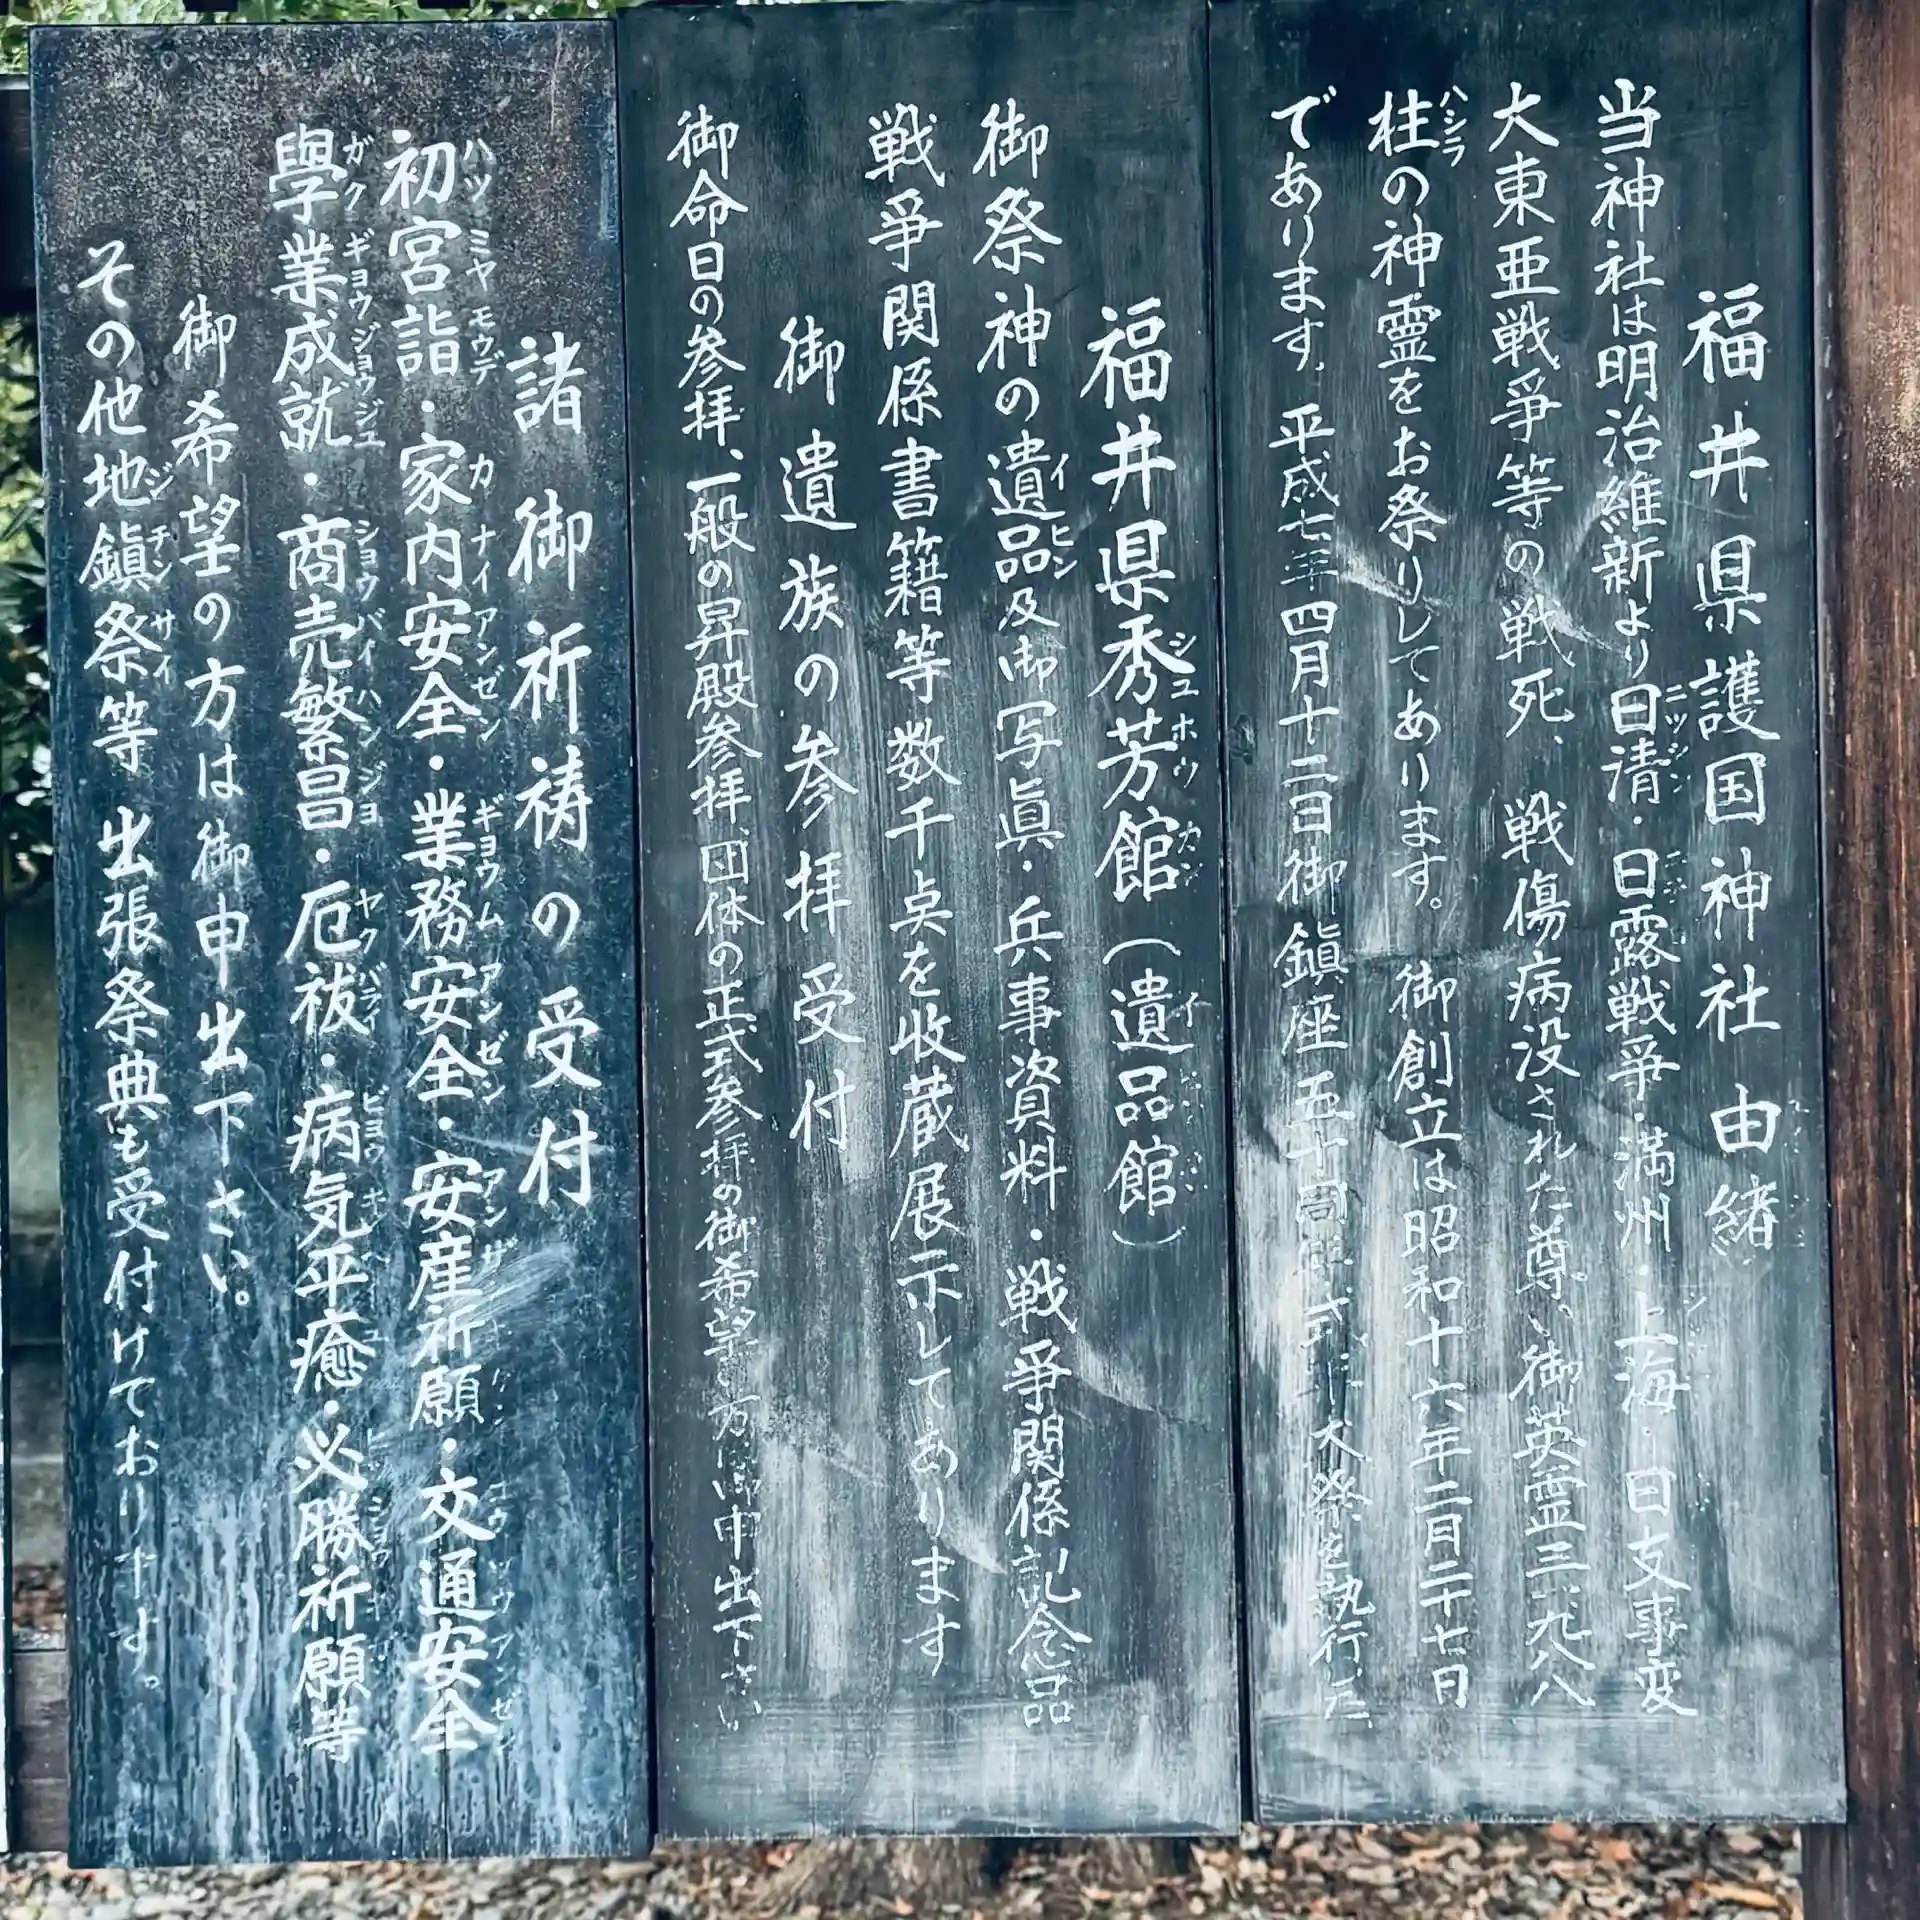 福井県護国神社 由緒
当神社は明治維新より日清・日露戦争・満州・上海・日支事変
大東亜戦争等の戦死、戦傷病没された尊い御英霊三一、九八八
柱の神霊をお祭りしてあります。 御創立は昭和十六年二月二十七日
であります。平成七年四月十二日御鎮座五十周年式年大祭を執行した
福井県秀芳館(遺品館)
御祭神の遺品及御写眞・兵事資料・戦争関係記念品
戦争関係書籍等数千点を收蔵展示してあります
御遺族の参拝受付
御命日の参拝、一般の昇殿参拝、団体の正式参拝の御希望の方は御申出下さい
諸御祈祷の受付
初宮詣・家内安全・業務安全・安産祈願・交通安全
學業成就・商売繁昌・厄祓・病気平癒・必勝祈願等
御希望の方は御申出下さい。
その他地鎮祭等 出張祭典も受付けております。